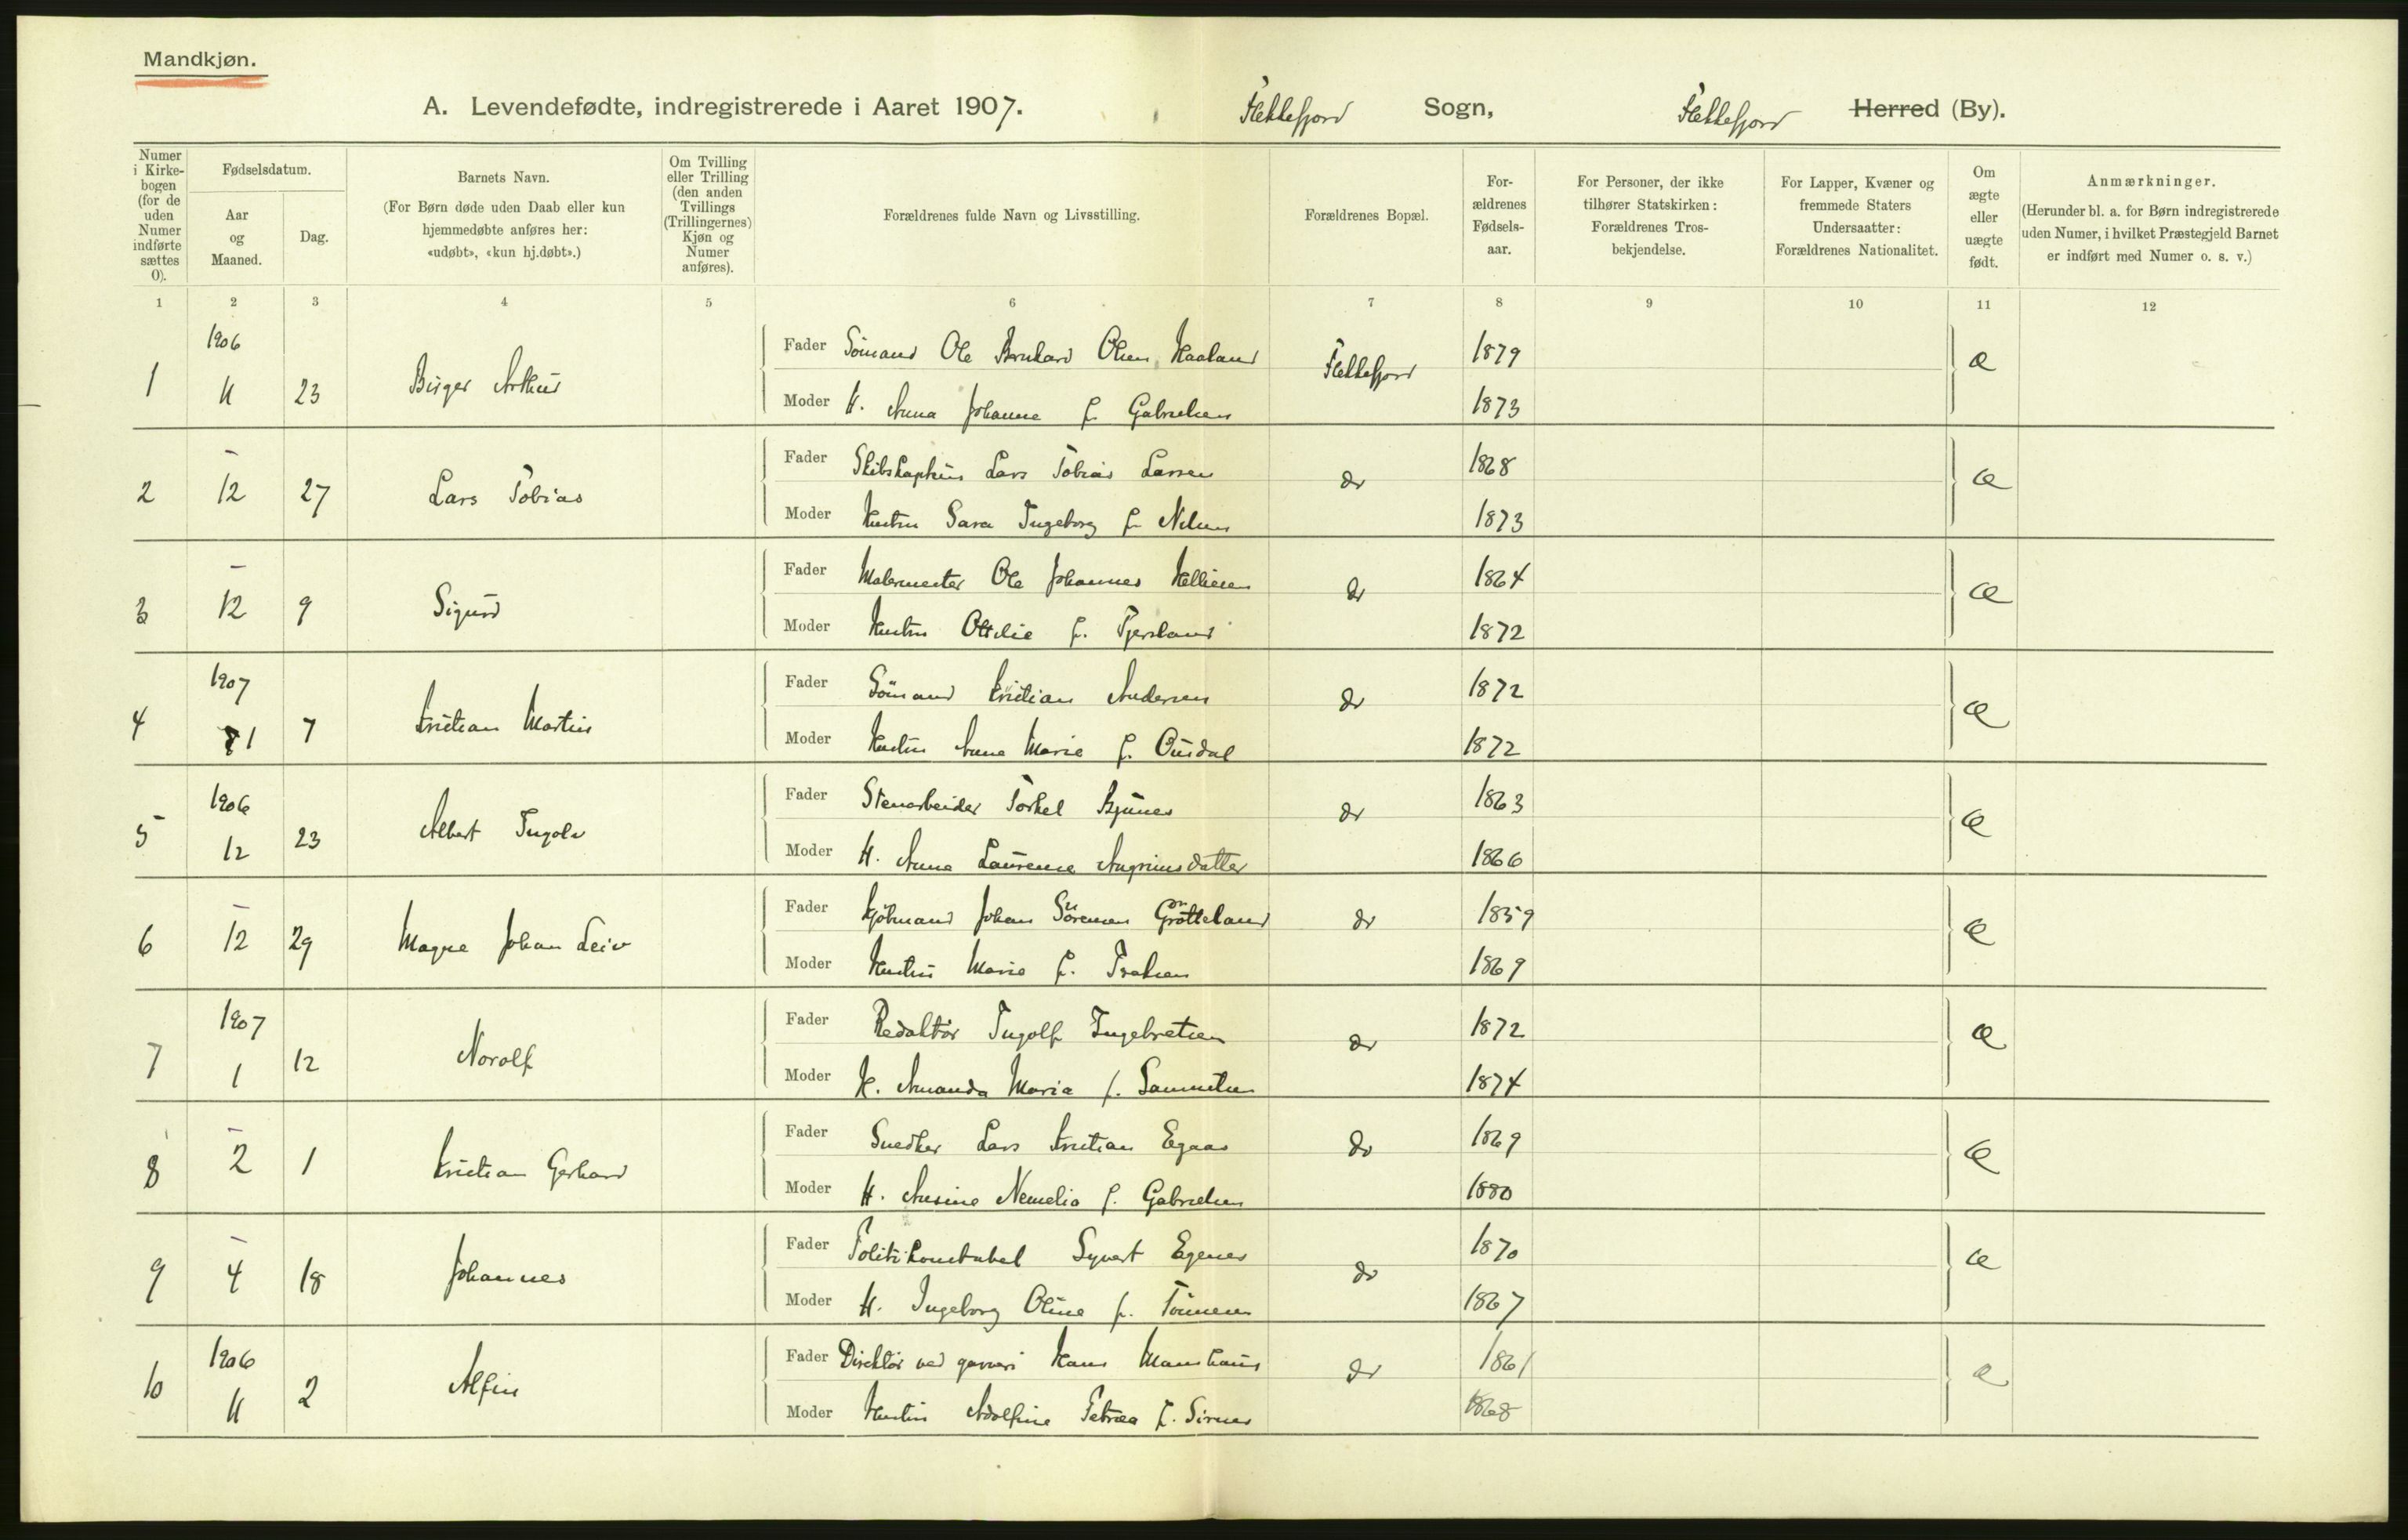 Mandkjøn.
A. Levendefødte, indregistrerede i Aaret 1907. Flekkefjord Sogn, Flekkefjord Herred (By).
Numer i Kirkebogen (for de uden Numer indførte sættes 0).
Fødselsdatum.
Aar og Maaned.
Dag.
Barnets Navn.
(For Børn døde uden Daab eller kun hjemmedøbte anføres her: «udøbt», «kun hj.døbt».)
Om Tvilling eller Trilling (den anden Tvillings (Trillingernes) Kjøn og Numer anføres).
Forældrenes fulde Navn og Livsstilling.
Forældrenes Bopæl.
For-ældrenes Fødsels-aar.
For Personer, der ikke tilhører Statskirken: Forældrenes Tros-bekjendelse.
For Lapper, Kvæner og fremmede Staters Undersaatter: Forældrenes Nationalitet.
Om ægte eller uægte født.
Anmærkninger.
(Herunder bl. a. for Børn indregistrerede uden Numer, i hvilket Præstegjeld Barnet er indført med Numer o. s. v.)
1 2 3 4 5 6 7 8 9 10 11 12
1 1906 11 23 Birger Arthur Fader Sömand Ole Bernhard Olsen Haaland Flekkefjord 1879 æ
Moder H. Anna Johanne f. Gabrielsen 1873
2 – 12 27 Lars Tobias Fader Skibskaptein Lars Tobias Larsen do 1868 æ
Moder Hustru Sara Ingeborg f. Nilsen 1873
3 – 12 9 Sigurd Fader Malermester Ole Johannes do 1864 æ
Moder Hustru Ottilie f. Tjersland 1872
4 1907 1 7 Kristian Martin Fader Sömand Kristian Andersen do 1872 æ
Moder Hustru Anna Marie f. Ousdal 1872
5 1906 12 23 Albert Ingolv Fader Stenarbeider Torkel do 1863 æ
Moder H. Anna Laurense 1866
6 – 12 29 Magne Johan Leiv Fader Kjöbmand Johan Sörensen Grötteland do 1859 æ
Moder Hustru Marie f. 1869
7 1907 1 12 Norolf Fader Redaktör Ingolf Ingebretsen do 1872 æ
Moder H. Amanda Maria f. Samuelsen 1874
8 – 2 1 Kristian Gerhard Fader Snedker Lars Kristian Egaas do 1869 æ
Moder H. f. Gabrielsen 1880
9 – 4 18 Johannes Fader Politikonstabel Syvert Egenes do 1870 æ
Moder H. Ingeborg Oline f. Tönnesen 1867
10 1906 11 2 Alfin Fader Direktör ved garveri Hans do 1861 æ
Moder Hustru Adolfine Petrea f. Sirnes 1868